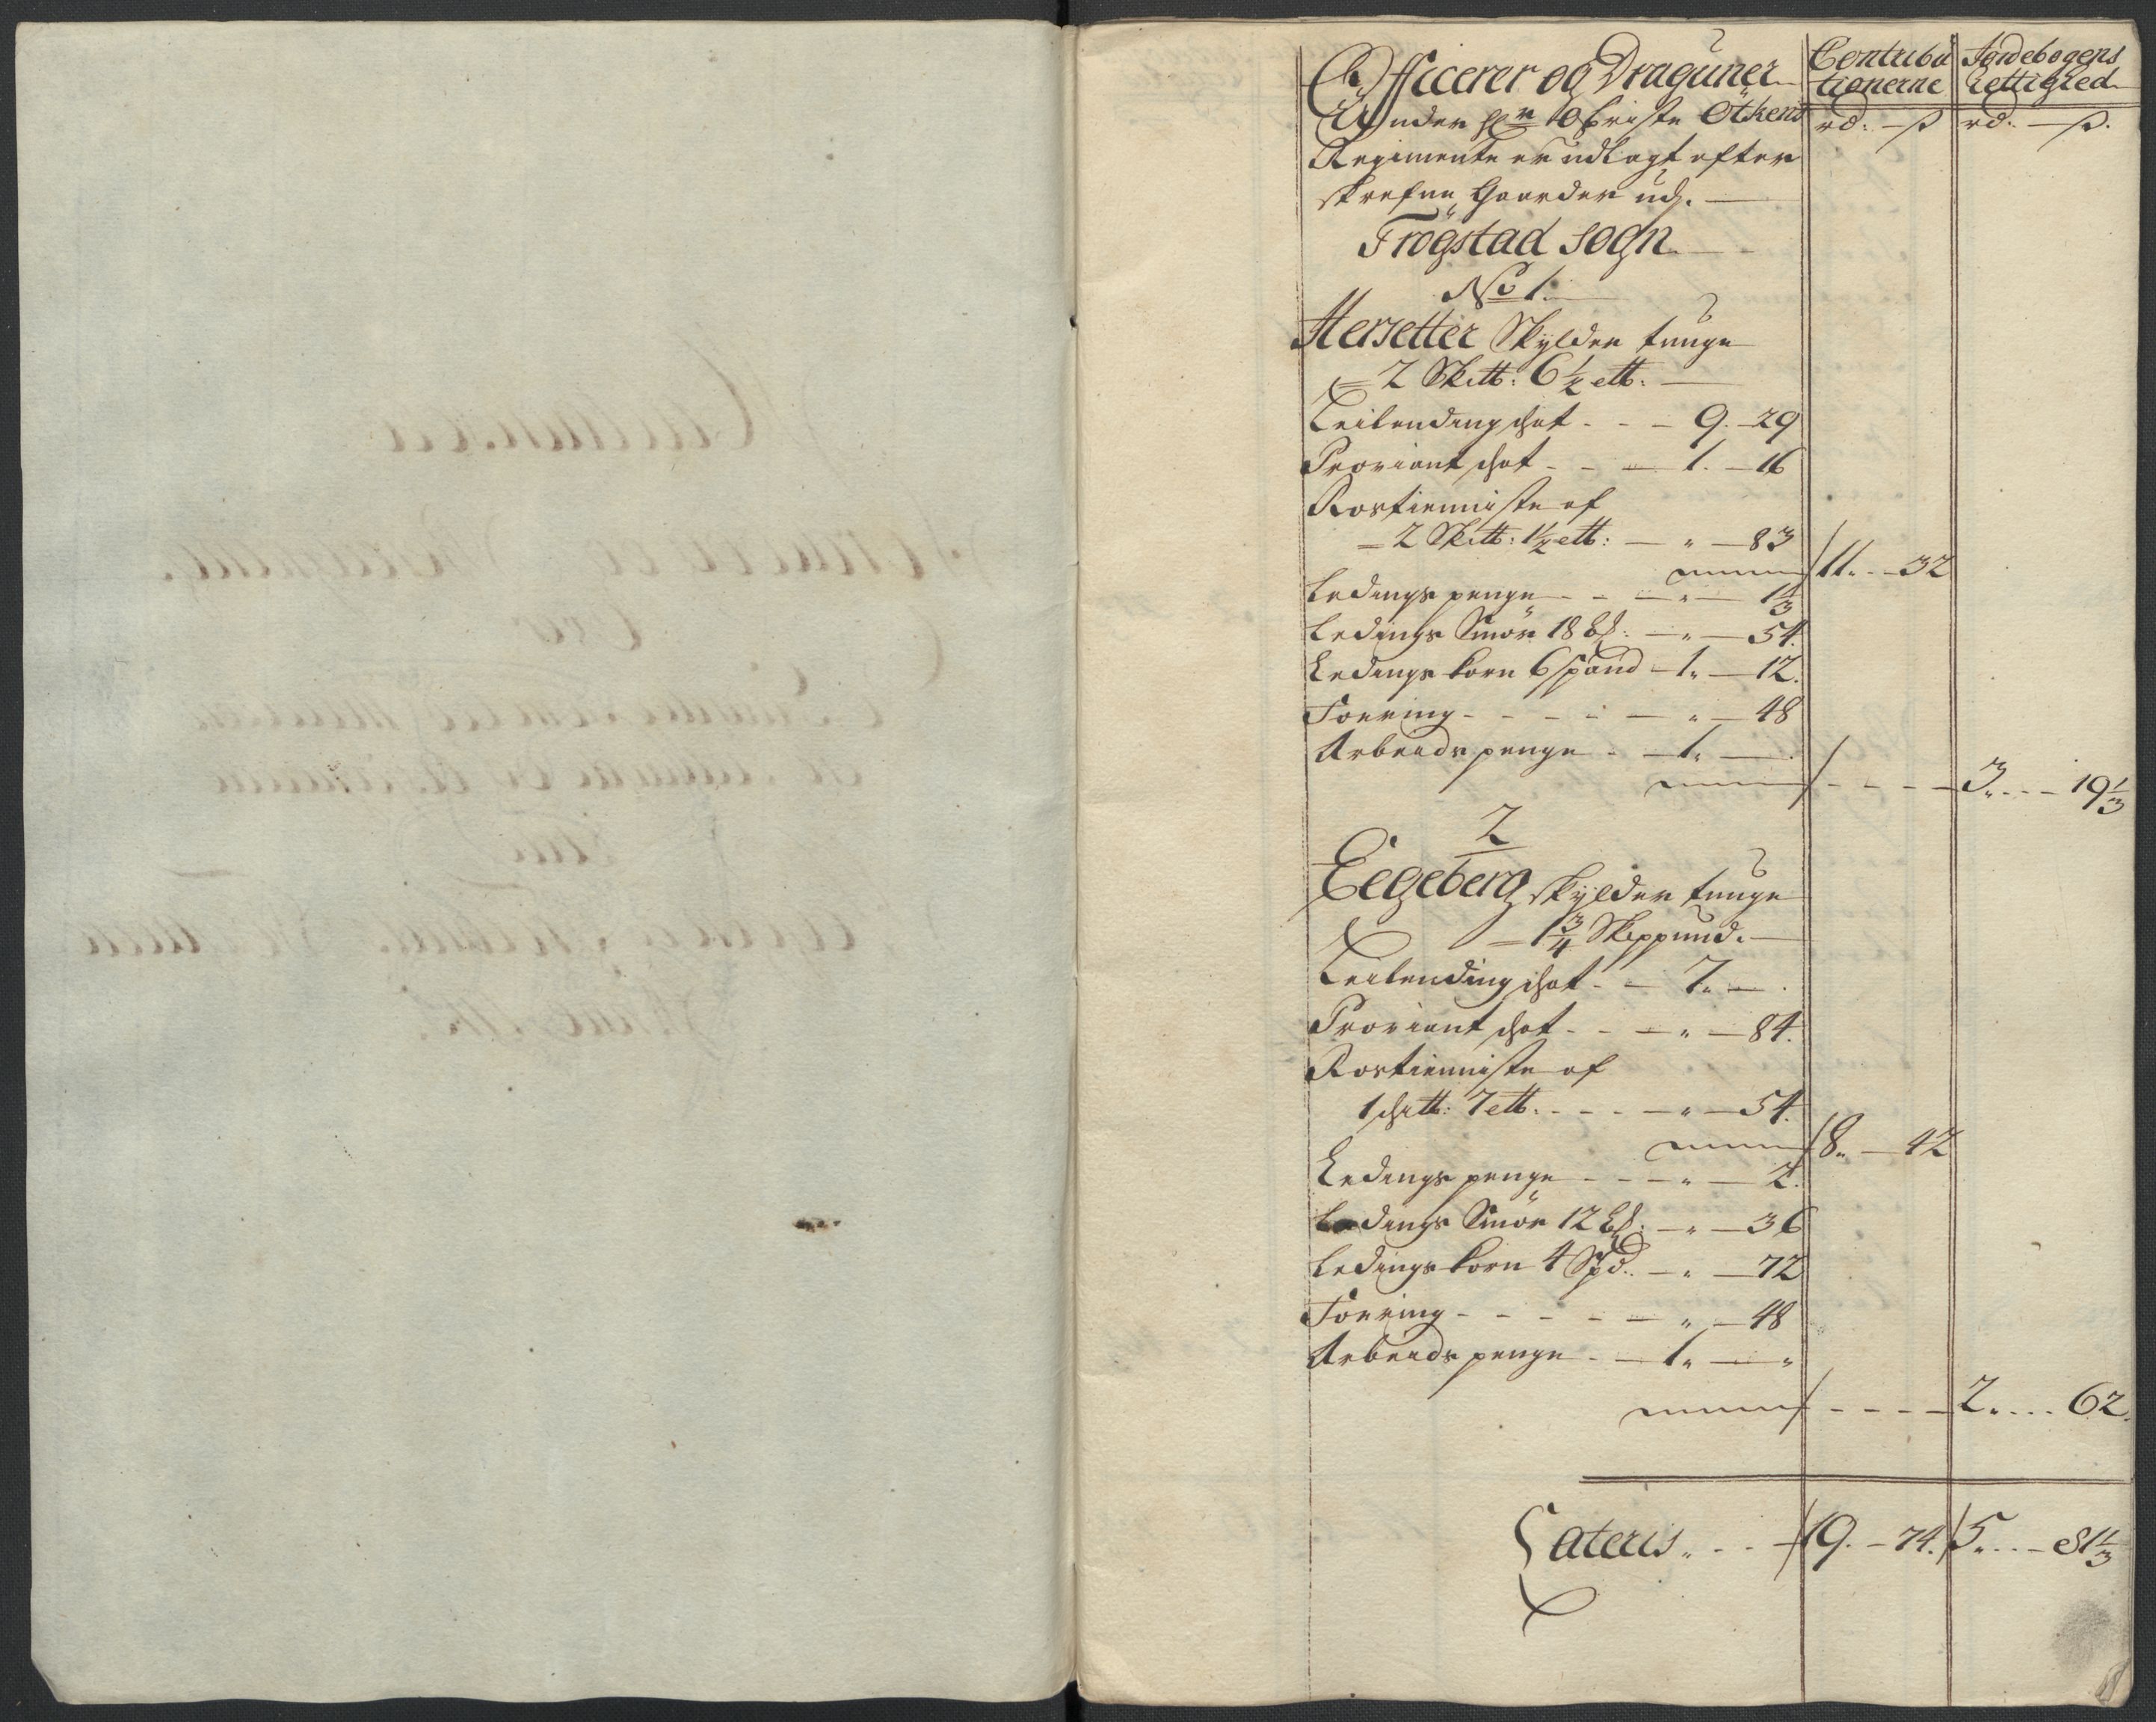 Officerer og Dragüner
Contribu
tionerne
Jordebogens
Rettighed
Under Hr Obriste Ötkens
rd: — ß
rd: — ß.
Regimente er udlagt efter
skrefne Gaarder uds.
Frögstad Sogn
No 1.
Hersetter Skylder tunge
2 Sk℔: 6½ ℔:
Leilending schat - - - 9. - 29
Proviant schat - - - 1. - 16
Rostienniste af
2 Sk℔: 1½ ℔: — „ — 83
11. - - 32
Ledings penge - - - „ — 1⅓
Ledings Smör 18 — „ — 54.
Ledings korn 6 spand - 1„ — 12.
Foering - - - - - „ — 48
Arbeids penge - - 1„ —
- - - - 3„ - - - 19⅓
2
Eegeberg skylder tunge
1¾ Skippund.
Leilending schat - - 7„ — .
Proviant schat - - - „ — 84.
Rostienniste af
1 sk℔: 7 ℔. - - - - „ — 54.
8„ — 42
Ledings penge - - - „ — 2.
Ledings Smör 12 — „ — 36
Ledings korn 4 Spd. — „ — 72
Foering - - - - - „ — 48
Arbeids penge - - 1„ — „
- - - - 2„ . . . 62.
Lateris„ . . - 19. - 74. 5„ . . - 81⅓